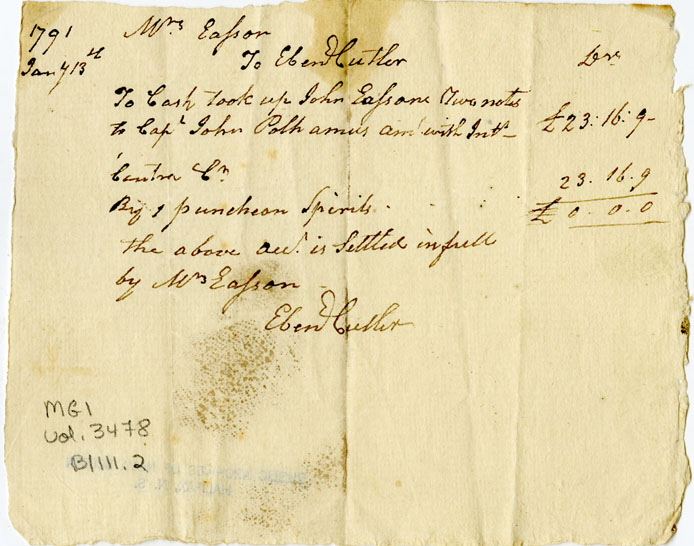 1791 Mrs Eaſson
Jany 13th To Ebenr Cutler Dr
To Cash took up John Eaſsons Two notes
to Capt John Polhamus amt with Intt £23:16:9
Contra Cr
By 1 puncheon Spirits 23.16.9
£0.0.0
the above acct. is Settled in full
by Mrs Eaſson
Ebenr Cutler
MG1
Vol. 3478
B/111.2